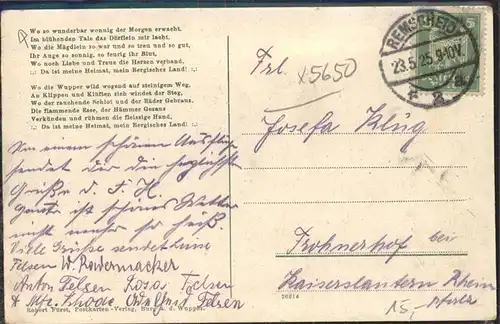 Wo so wunderbar wonnig der Morgen erwacht,
Im blühenden Tale das Dörflein mir lacht.
Wo die Mägdlein so war und so treu und so gut,
Ihr Auge so sonnig, so feurig ihr Blut,
Wo noch Liebe und Treue die Herzen verband,
:,: Da ist meine Heimat, mein Bergisches Land! :,:
Wo die Wupper wild wogend auf steinigem Weg,
An Klippen und Klüften sich windet der Steg,
Wo der rauchende Schlot und der Räder Gebraus,
Die flammende Esse, der Hämmer Gesaus
Verkünden und rühmen die fleissige Hand,
:,: Da ist meine Heimat, mein Bergisches Land! :,:
REMSCHEID
23.5.25. 9-10V.
5
Frl.
x5650
Josefa Klug
Frohnerhof bei
Kaiserslautern Rhein
Pfalz
15,-
Von einem schönen Ausflug
sendet dir die herzlichsten
Grüße d. F. H.
heute ist schönes Wetter
nicht mehr so heiß
Viele Grüße sendet
Felsen W. Radermacher
Anton Felsen Rosa Felsen
Felsen
Robert Fürst, Postkarten-Verlag, Burg a. d. Wupper.
20814